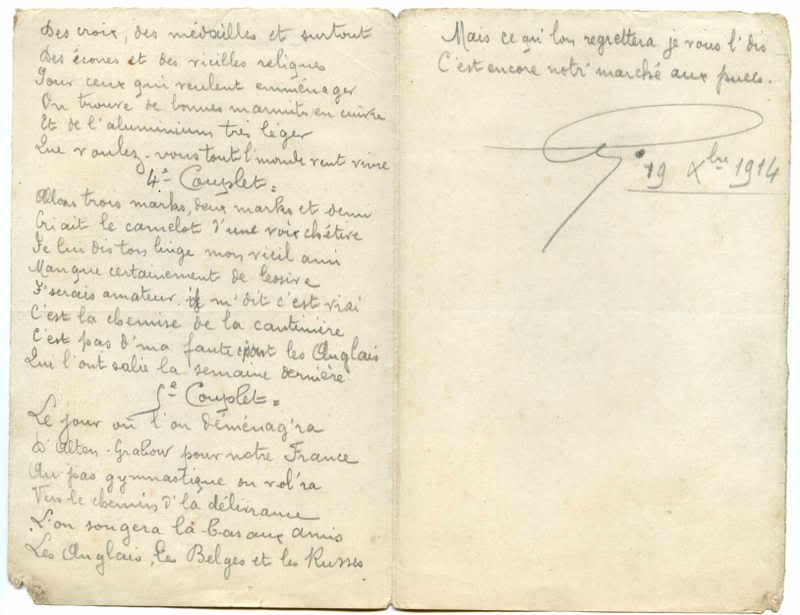 Des croix, des médailles et surtout
Des écones et des vieilles reliques
Pour ceux qui veulent emménager
On trouve de bonnes marmits en cuivre
Et de l'aluminium très léger
Que voulez-vous tout l'monde veut vivre
4e Couplet =
Allons trois marks, deux marks et demi
Criait le camelot d'une voix chétive
Je lui dis ton linge mon vieil ami
Manque certainement de lessive
J'serais amateur. il m'dit c'est vrai
C'est la chemise de la cantinière
C'est pas d'ma faute les Anglais
Qui l'ont salie la semaine dernière
5e Couplet =
Le jour où l'on déménag'ra
D'Alten-Grabow pour notre France
Au pas gymnastique on vol'ra
Vers le chemin d'la délivrance
L'on songera là-bas aux amis
Les Anglais, les Belges et les Russes
Mais ce qu'lon regrettera je vous l'dis
C'est encore notr'marché aux puces.
19 Xbre 1914